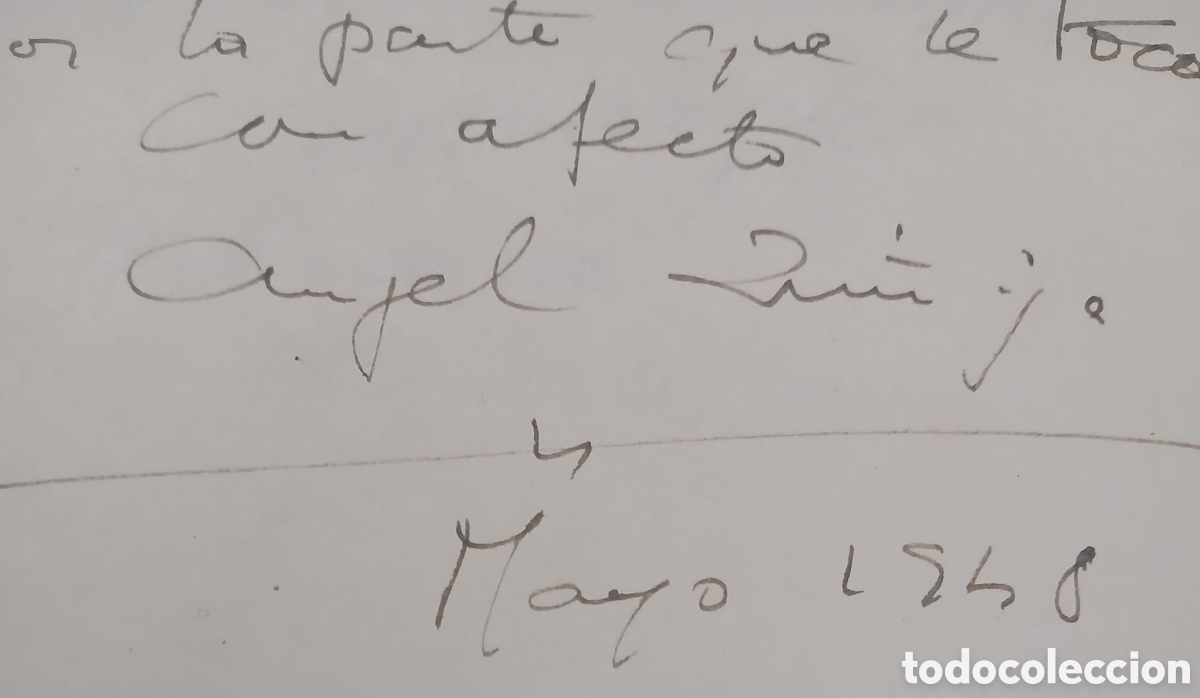 or la parte que le toca
con afecto
Angel
Mayo 1948
todocoleccion